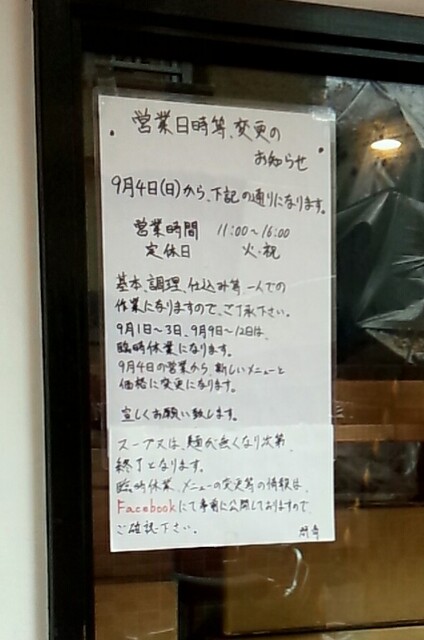 営業日時等、変更の
お知らせ
9月4日(日)から、下記の通りになります。
営業時間 11:00〜16:00
定休日 火・祝
基本、調理、仕込み等、一人での
作業になりますので、ご了承下さい。
9月1日〜3日、9月9日〜12日は、
臨時休業になります。
9月4日の営業から、新しいメニューと
価格に変更になります。
宜しくお願い致します。
スープ又は、麺が無くなり次第、
終了となります。
臨時休業、メニューの変更等の情報は、
Facebookにて事前に公開しておりますので、
ご確認下さい。